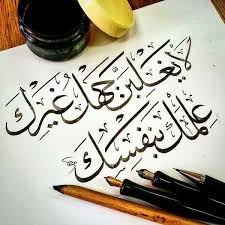 لا يغلبن جهل غيرك
علمك بنفسك